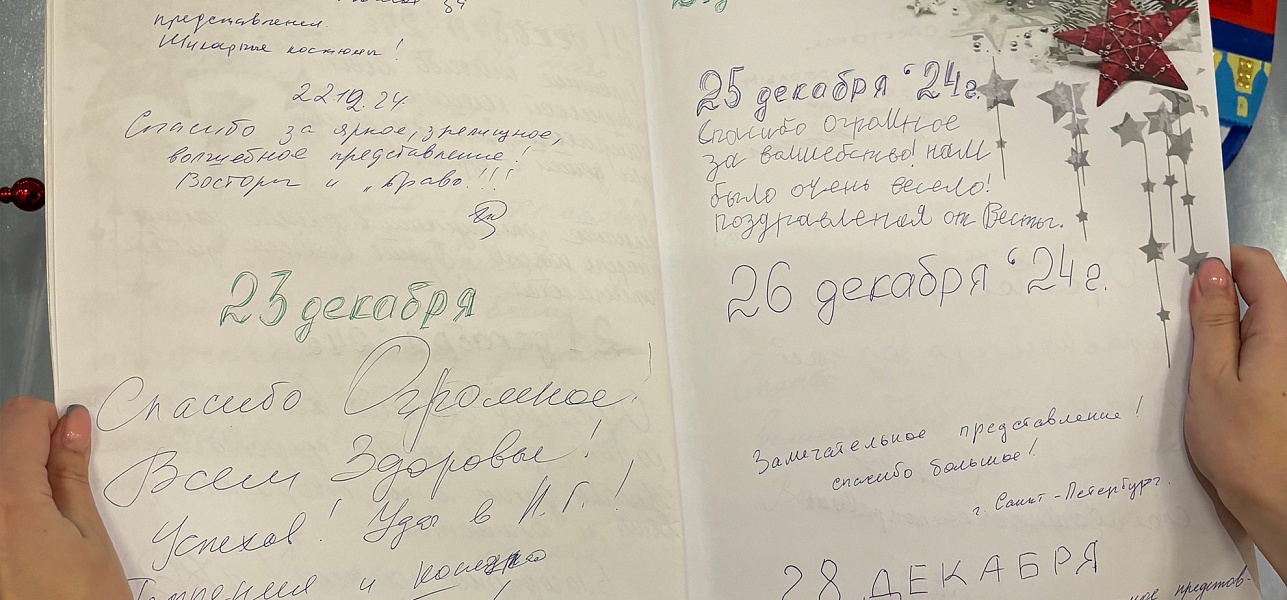 представления.
Шикарные костюмы!
22 12. 24
Спасибо за яркое, зрелищное,
волшебное представление!
Восторг и „браво"!!!
23 декабря
Спасибо Огромное!
Всем Здоровья!
Успехов! Удач в Н.Г.!
Терпения и
25 декабря '24г.
Спасибо огромное
за валшебство! нам
было очень весело!
поздравления от Весты.
26 декабря '24г.
Замечательное представление!
спасибо большое!
г. Санкт-Петербург.
28 ДЕКАБРЯ
представ-